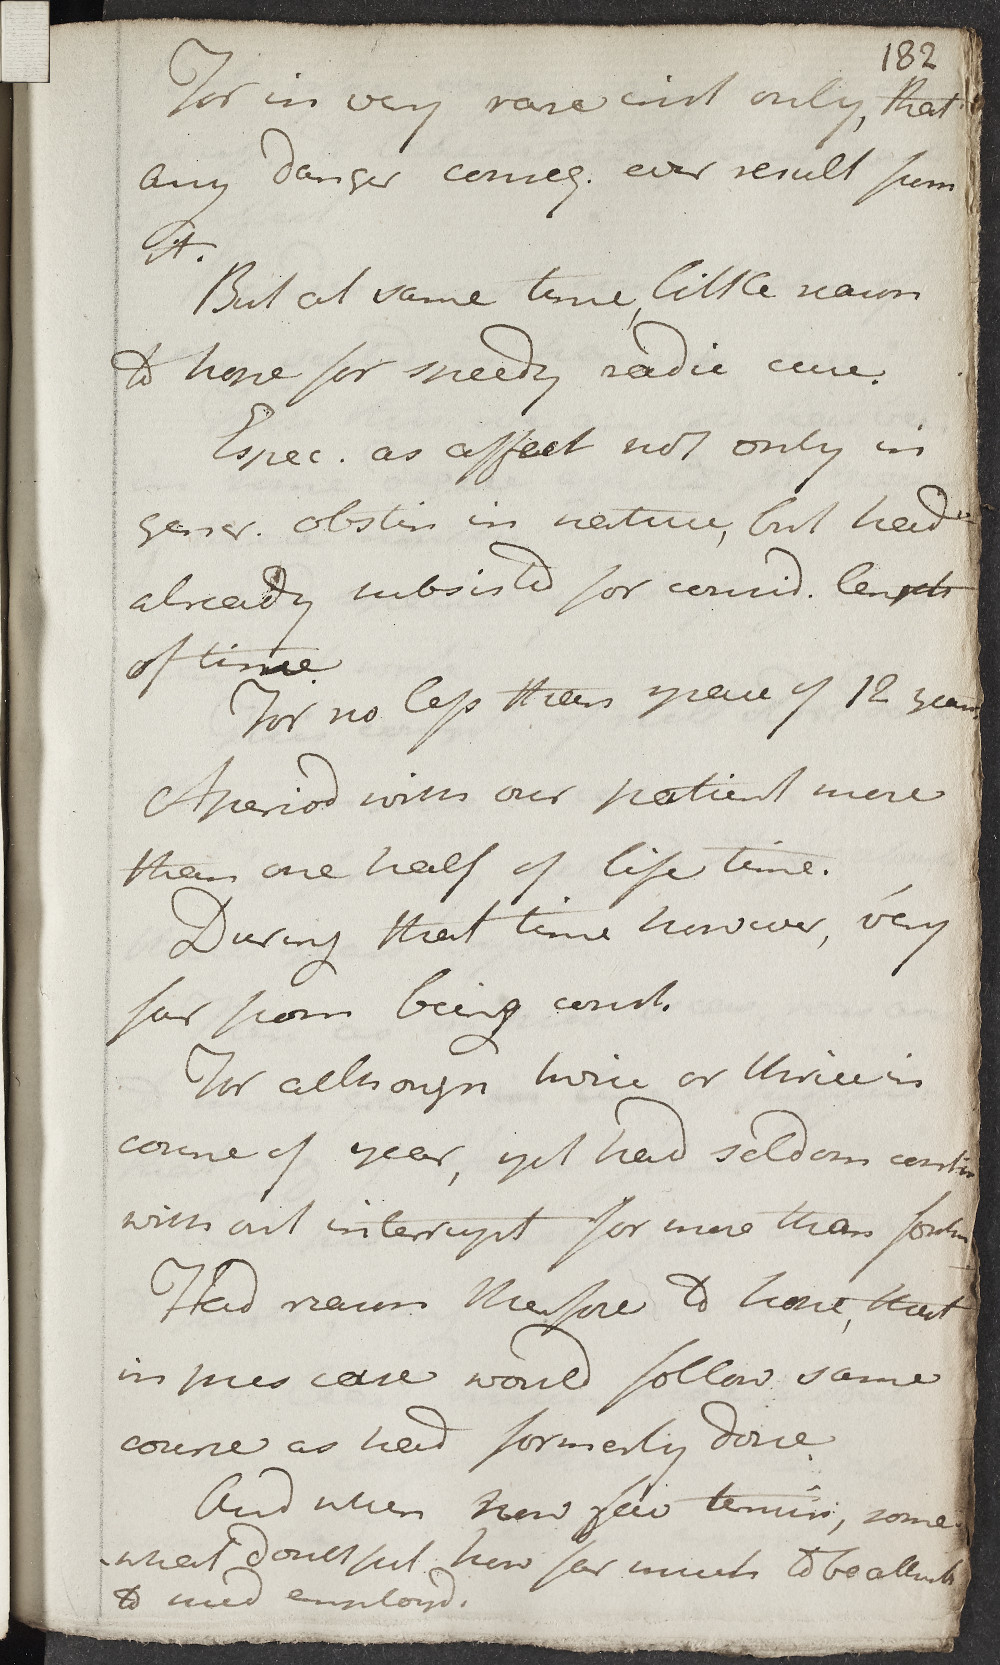 182
For in very rare inst only, that
any danger conseq. ever result from
it.
But at same time, little reason
to hope for speedy radic cure.
Espec. as affect not only in
gener. obstin in nature, but had
already subsisted for consid. length
of time.
For no less than space of 12 years
A period with our patient more
than one half of life time.
During that time however, very
far from being const.
For although twice or thrice in
course of year, yet had seldom contin
without interrupt for more than
Had reason therefore to hope, that
in pres case would follow same
course as had formerly done.
And when now few, some
what doubtful how far much to be attrib
to med employd.